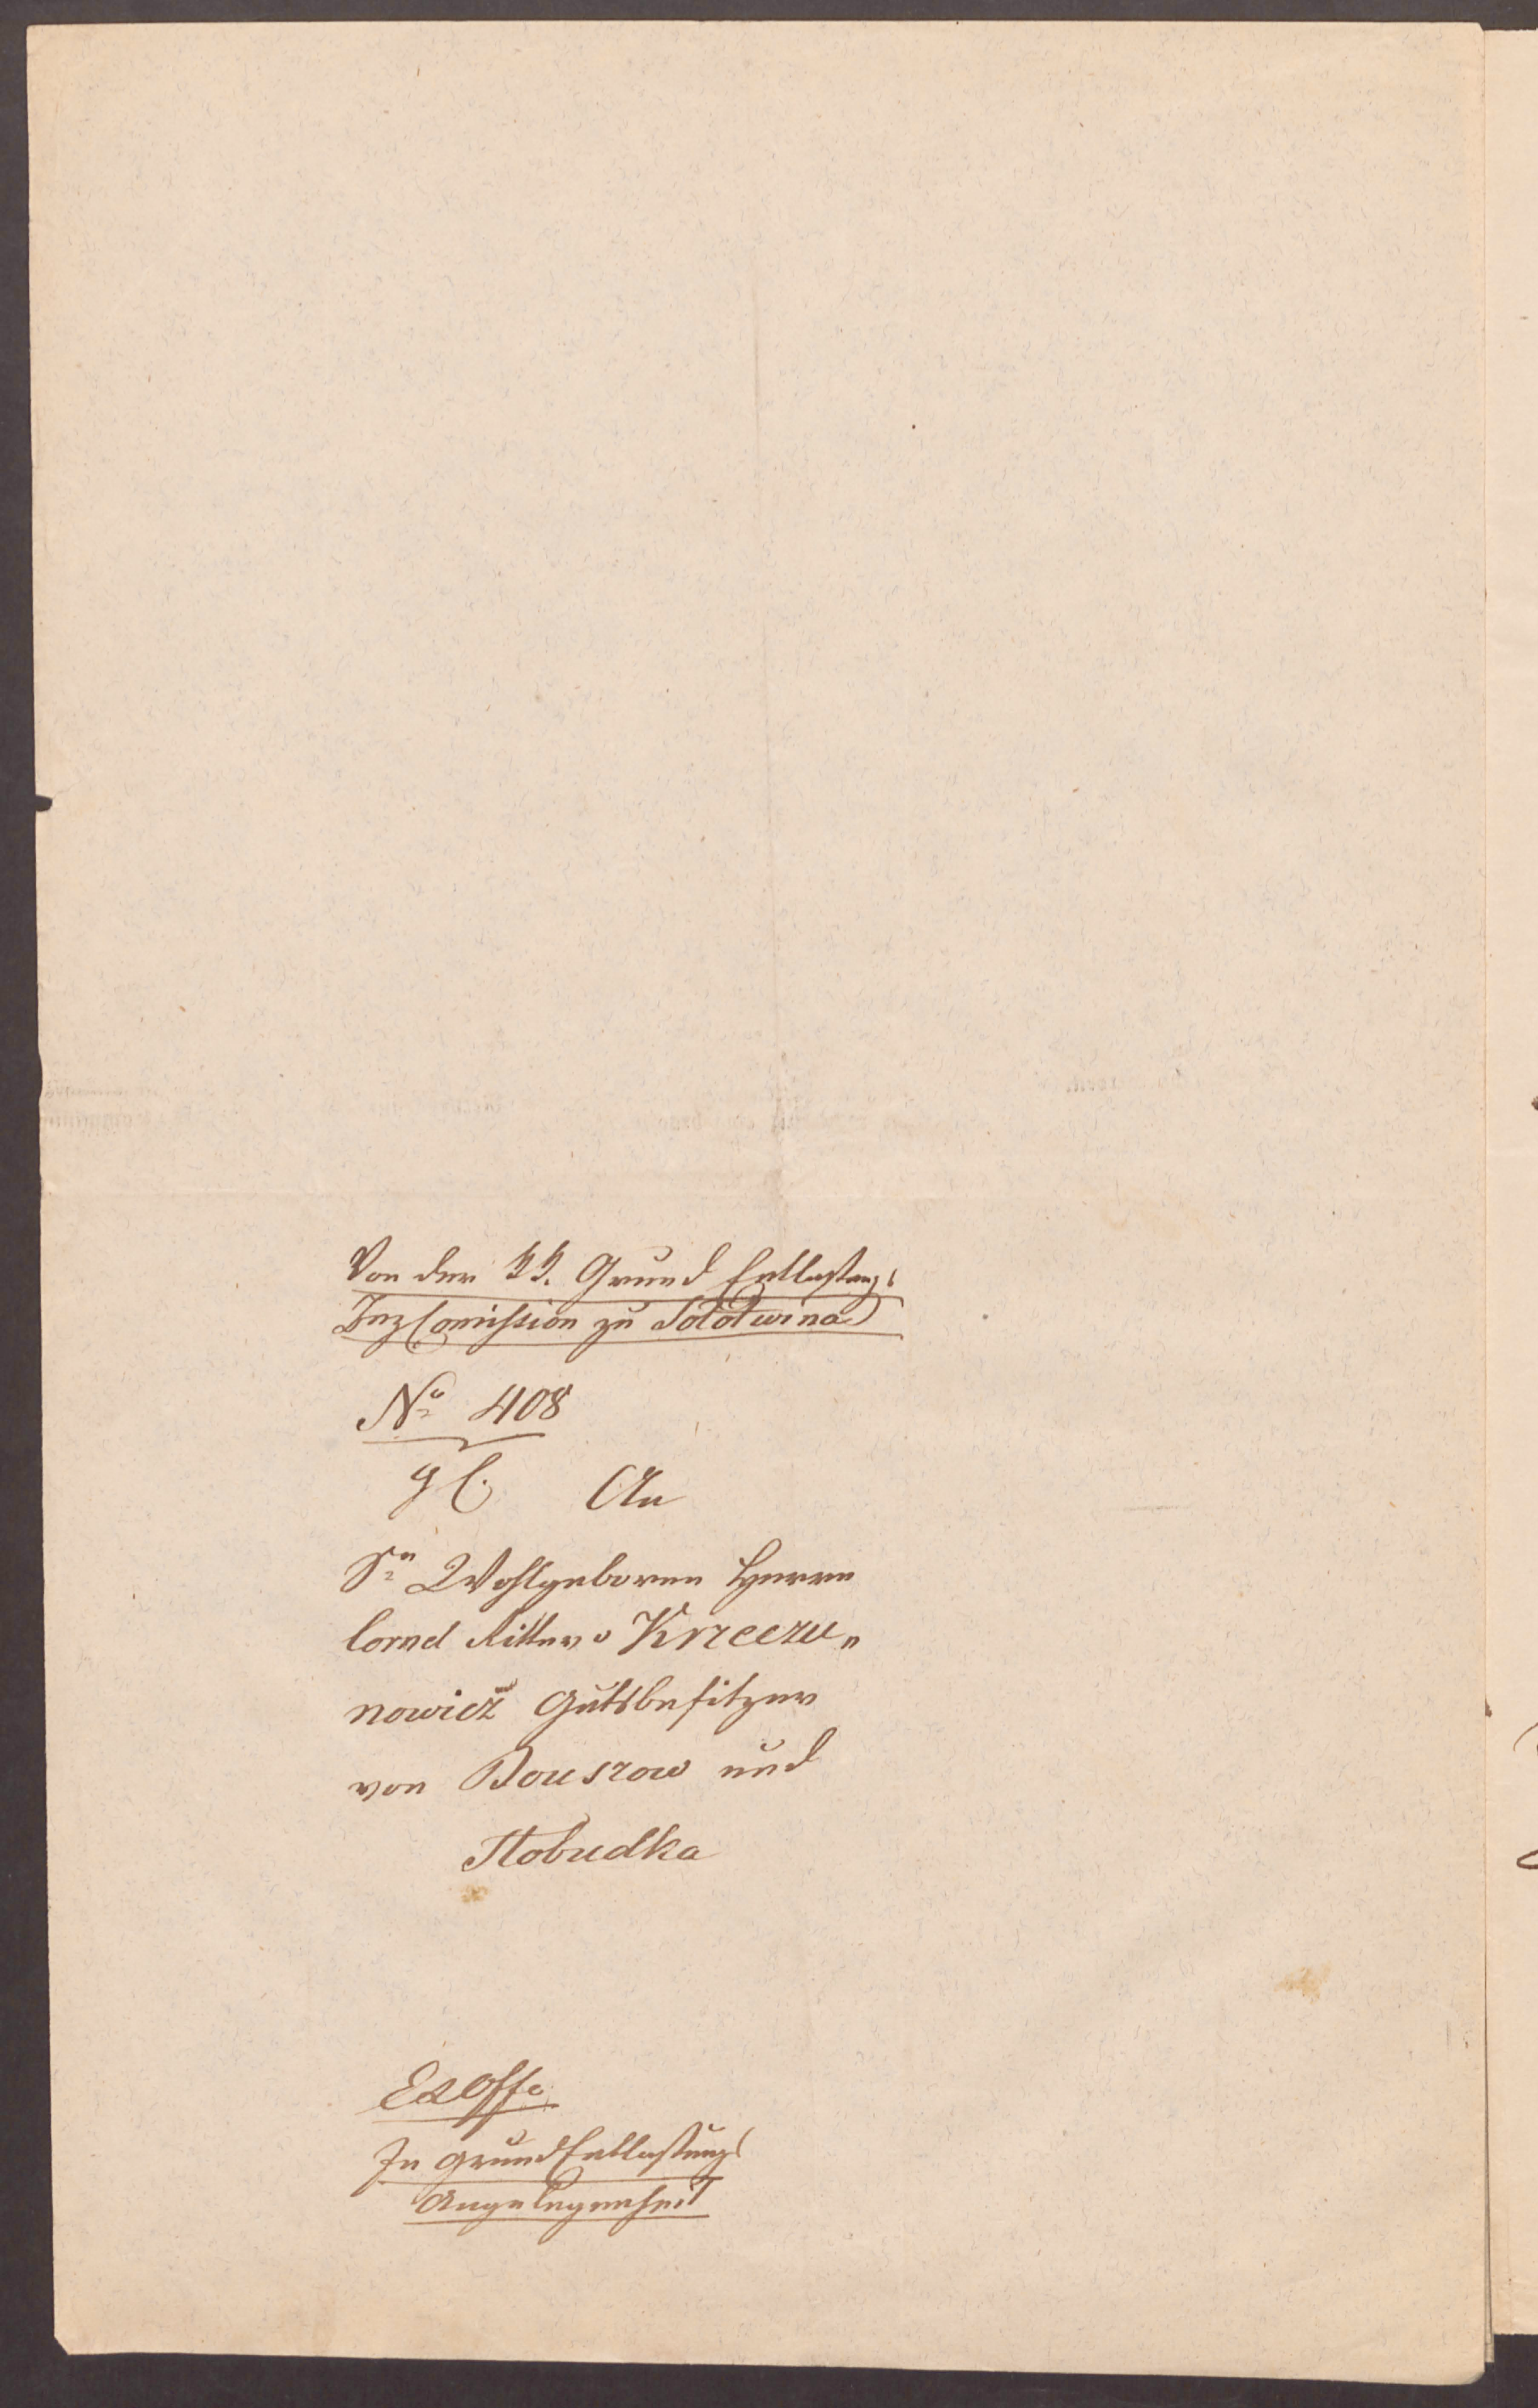 Von der k k. Grund Entlastungs
Bez Comission zu Sołotwina
No 408
An
Sr Wohlgeboren Herrn
Cornel Ritter v Krzeczu„
nowicz Gutsbesitzer
von Bouszow und
Slobudka
Ex Offo
In Grund Entlastungs
Angelegenheit